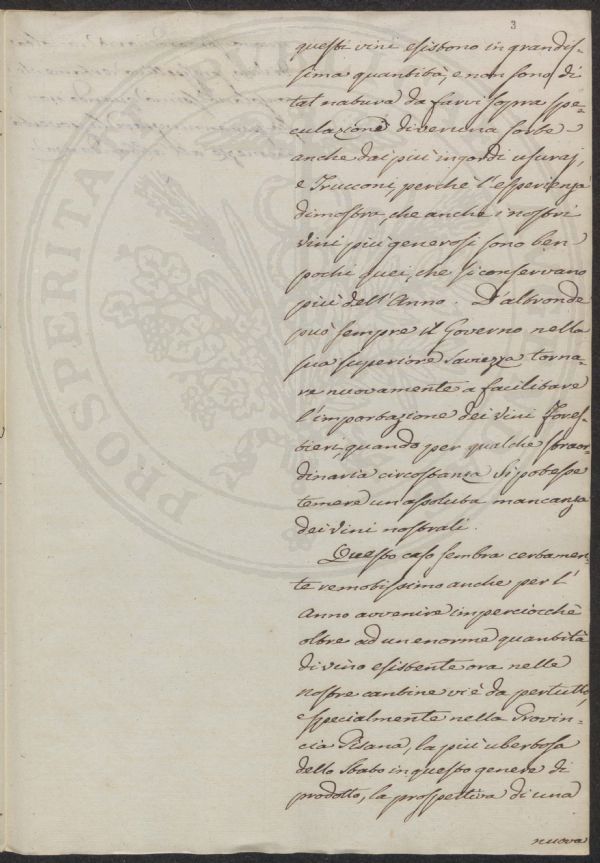 3
questi vini esistono in grandis-
sima quantità, e non sono di
tal natura da farvi sopra spe-
culazione di veruna sorte
anche dai più ingordi usuraj,
e Trucconi, perchè l'esperienza
dimostra, che anche i nostri
vini più generosi sono ben
pochi quei, che si conservano
più dell'Anno. D'altronde
può sempre il Governo nella
sua superiore saviezza torna-
re nuovamente a facilitare
l'importazione dei vini Fores-
tieri, quando per qualche straor-
dinaria circostanza si potesse
temere un assoluta mancanza
dei vini nostrali.
Questo caso sembra certamen-
te remotissimo anche per l'
Anno avvenire imperciocchè
oltre ad un enorme quantità
di vino esistente ora nelle
nostre cantine vi è da pertutto,
e specialmente nella Provin-
cia Pisana, la più ubertosa
dello Stato in questo genere di
prodotto, la prospettiva di una
nuova
PROSPERITÀ PUBBLICA